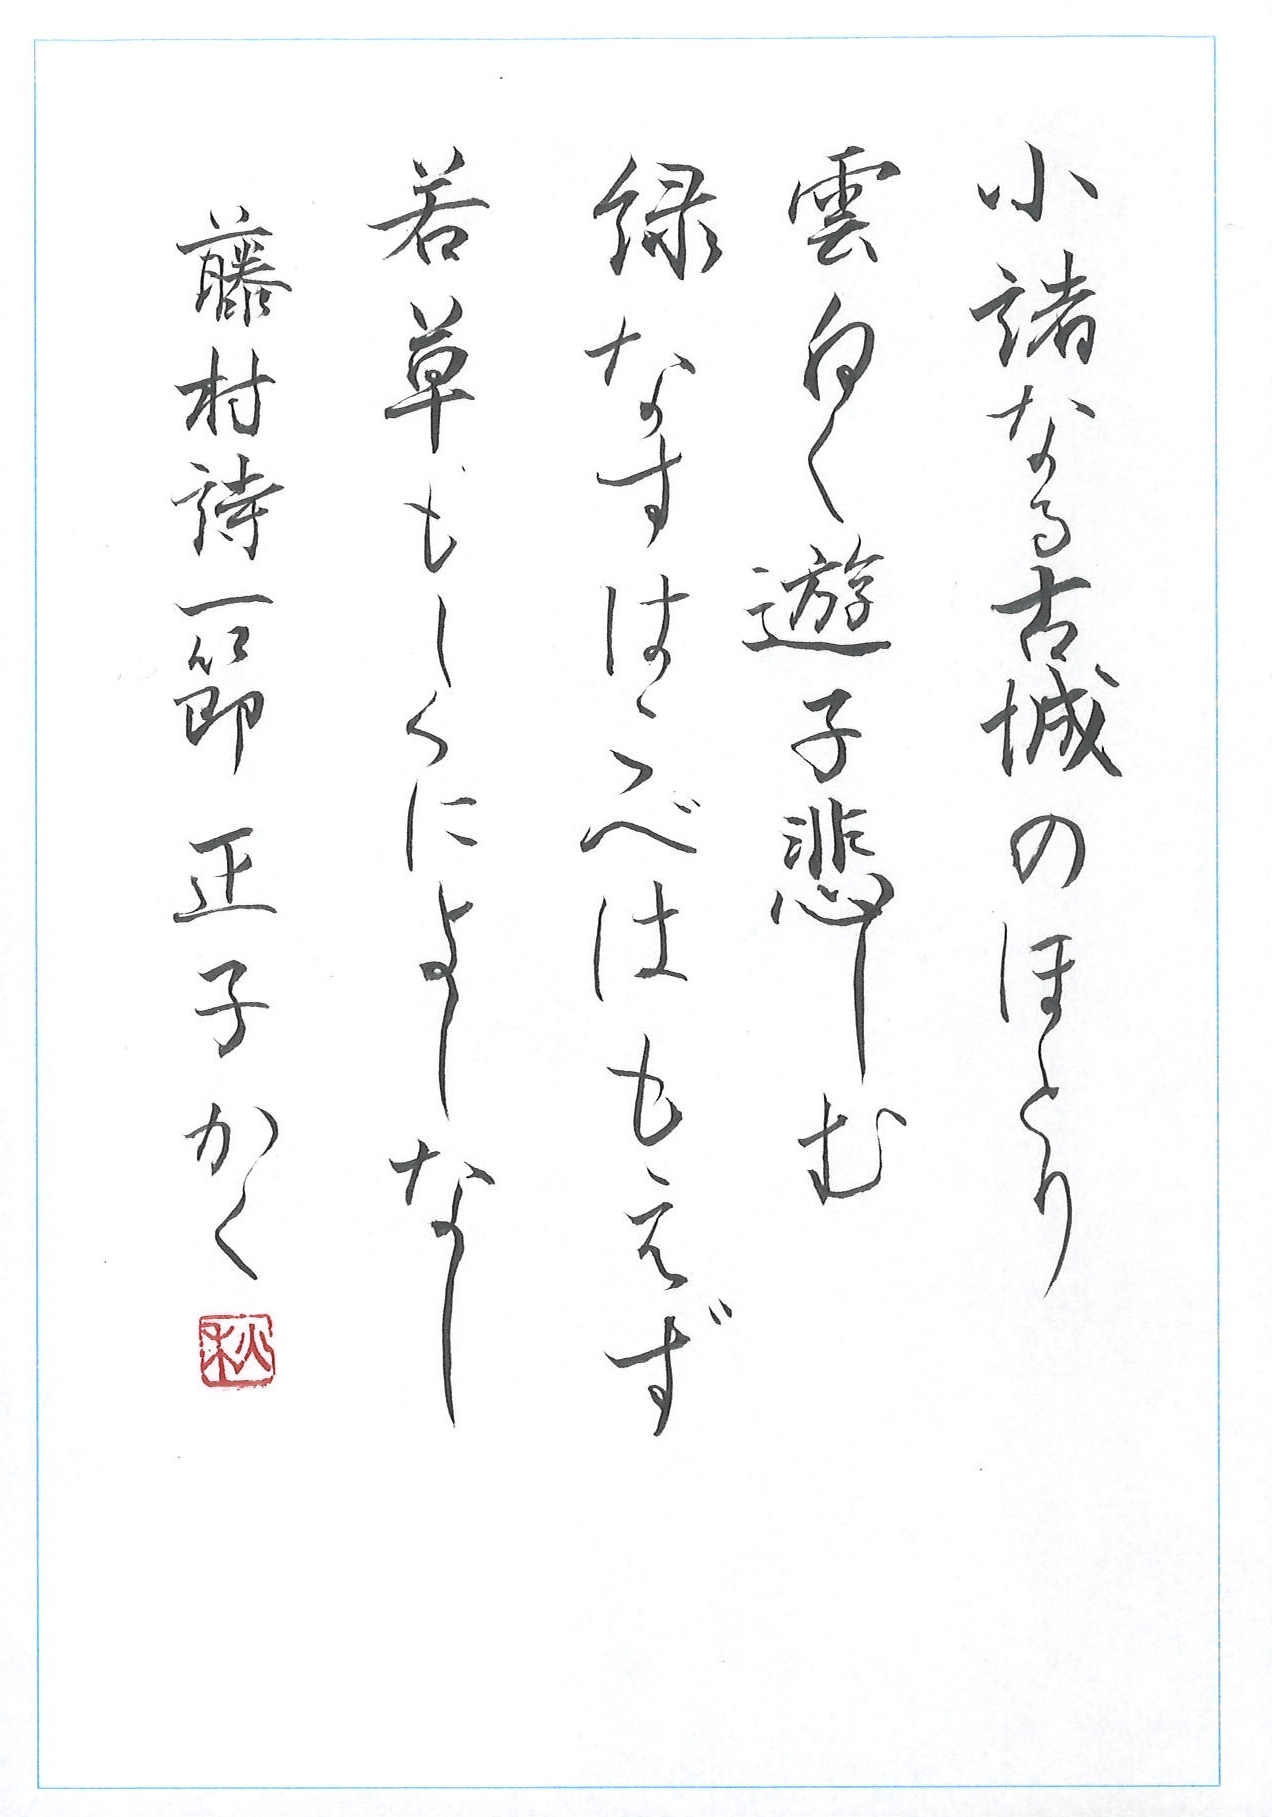 小諸なる古城のほとり
雲白く遊子悲しむ
緑なすはこべはもえず
若草もしくによしなし
藤村詩一節 正子かく
秋